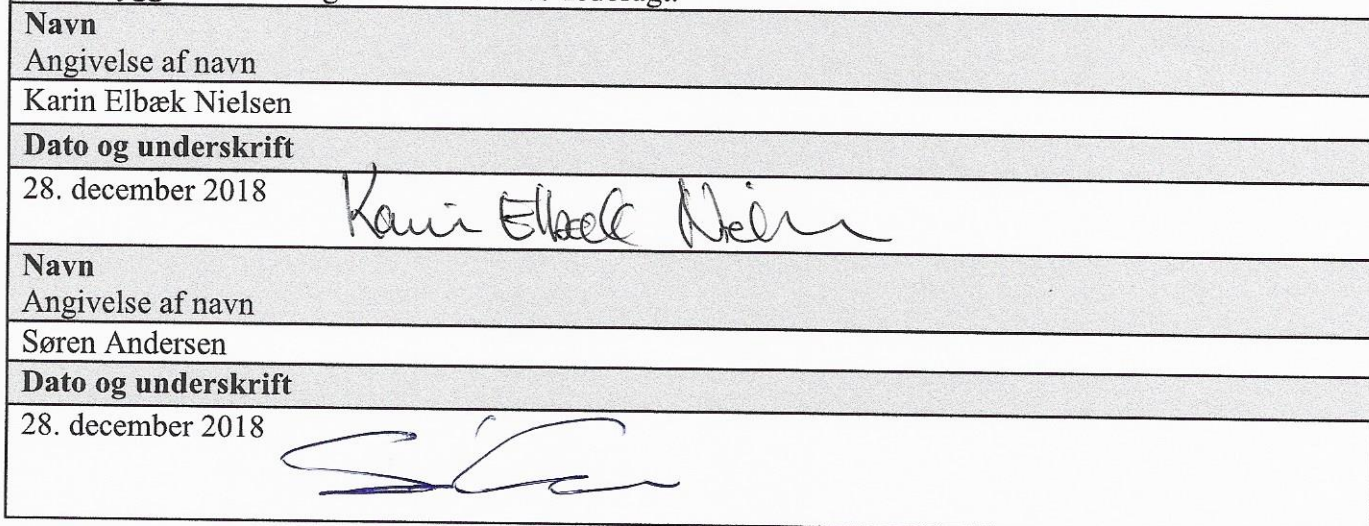 Navn
Angivelse af navn
Karin Elbæk Nielsen
Dato og underskrift
28. december 2018 Karin Elbæk Nielsen
Navn
Angivelse af navn
Søren Andersen
Dato og underskrift
28. december 2018